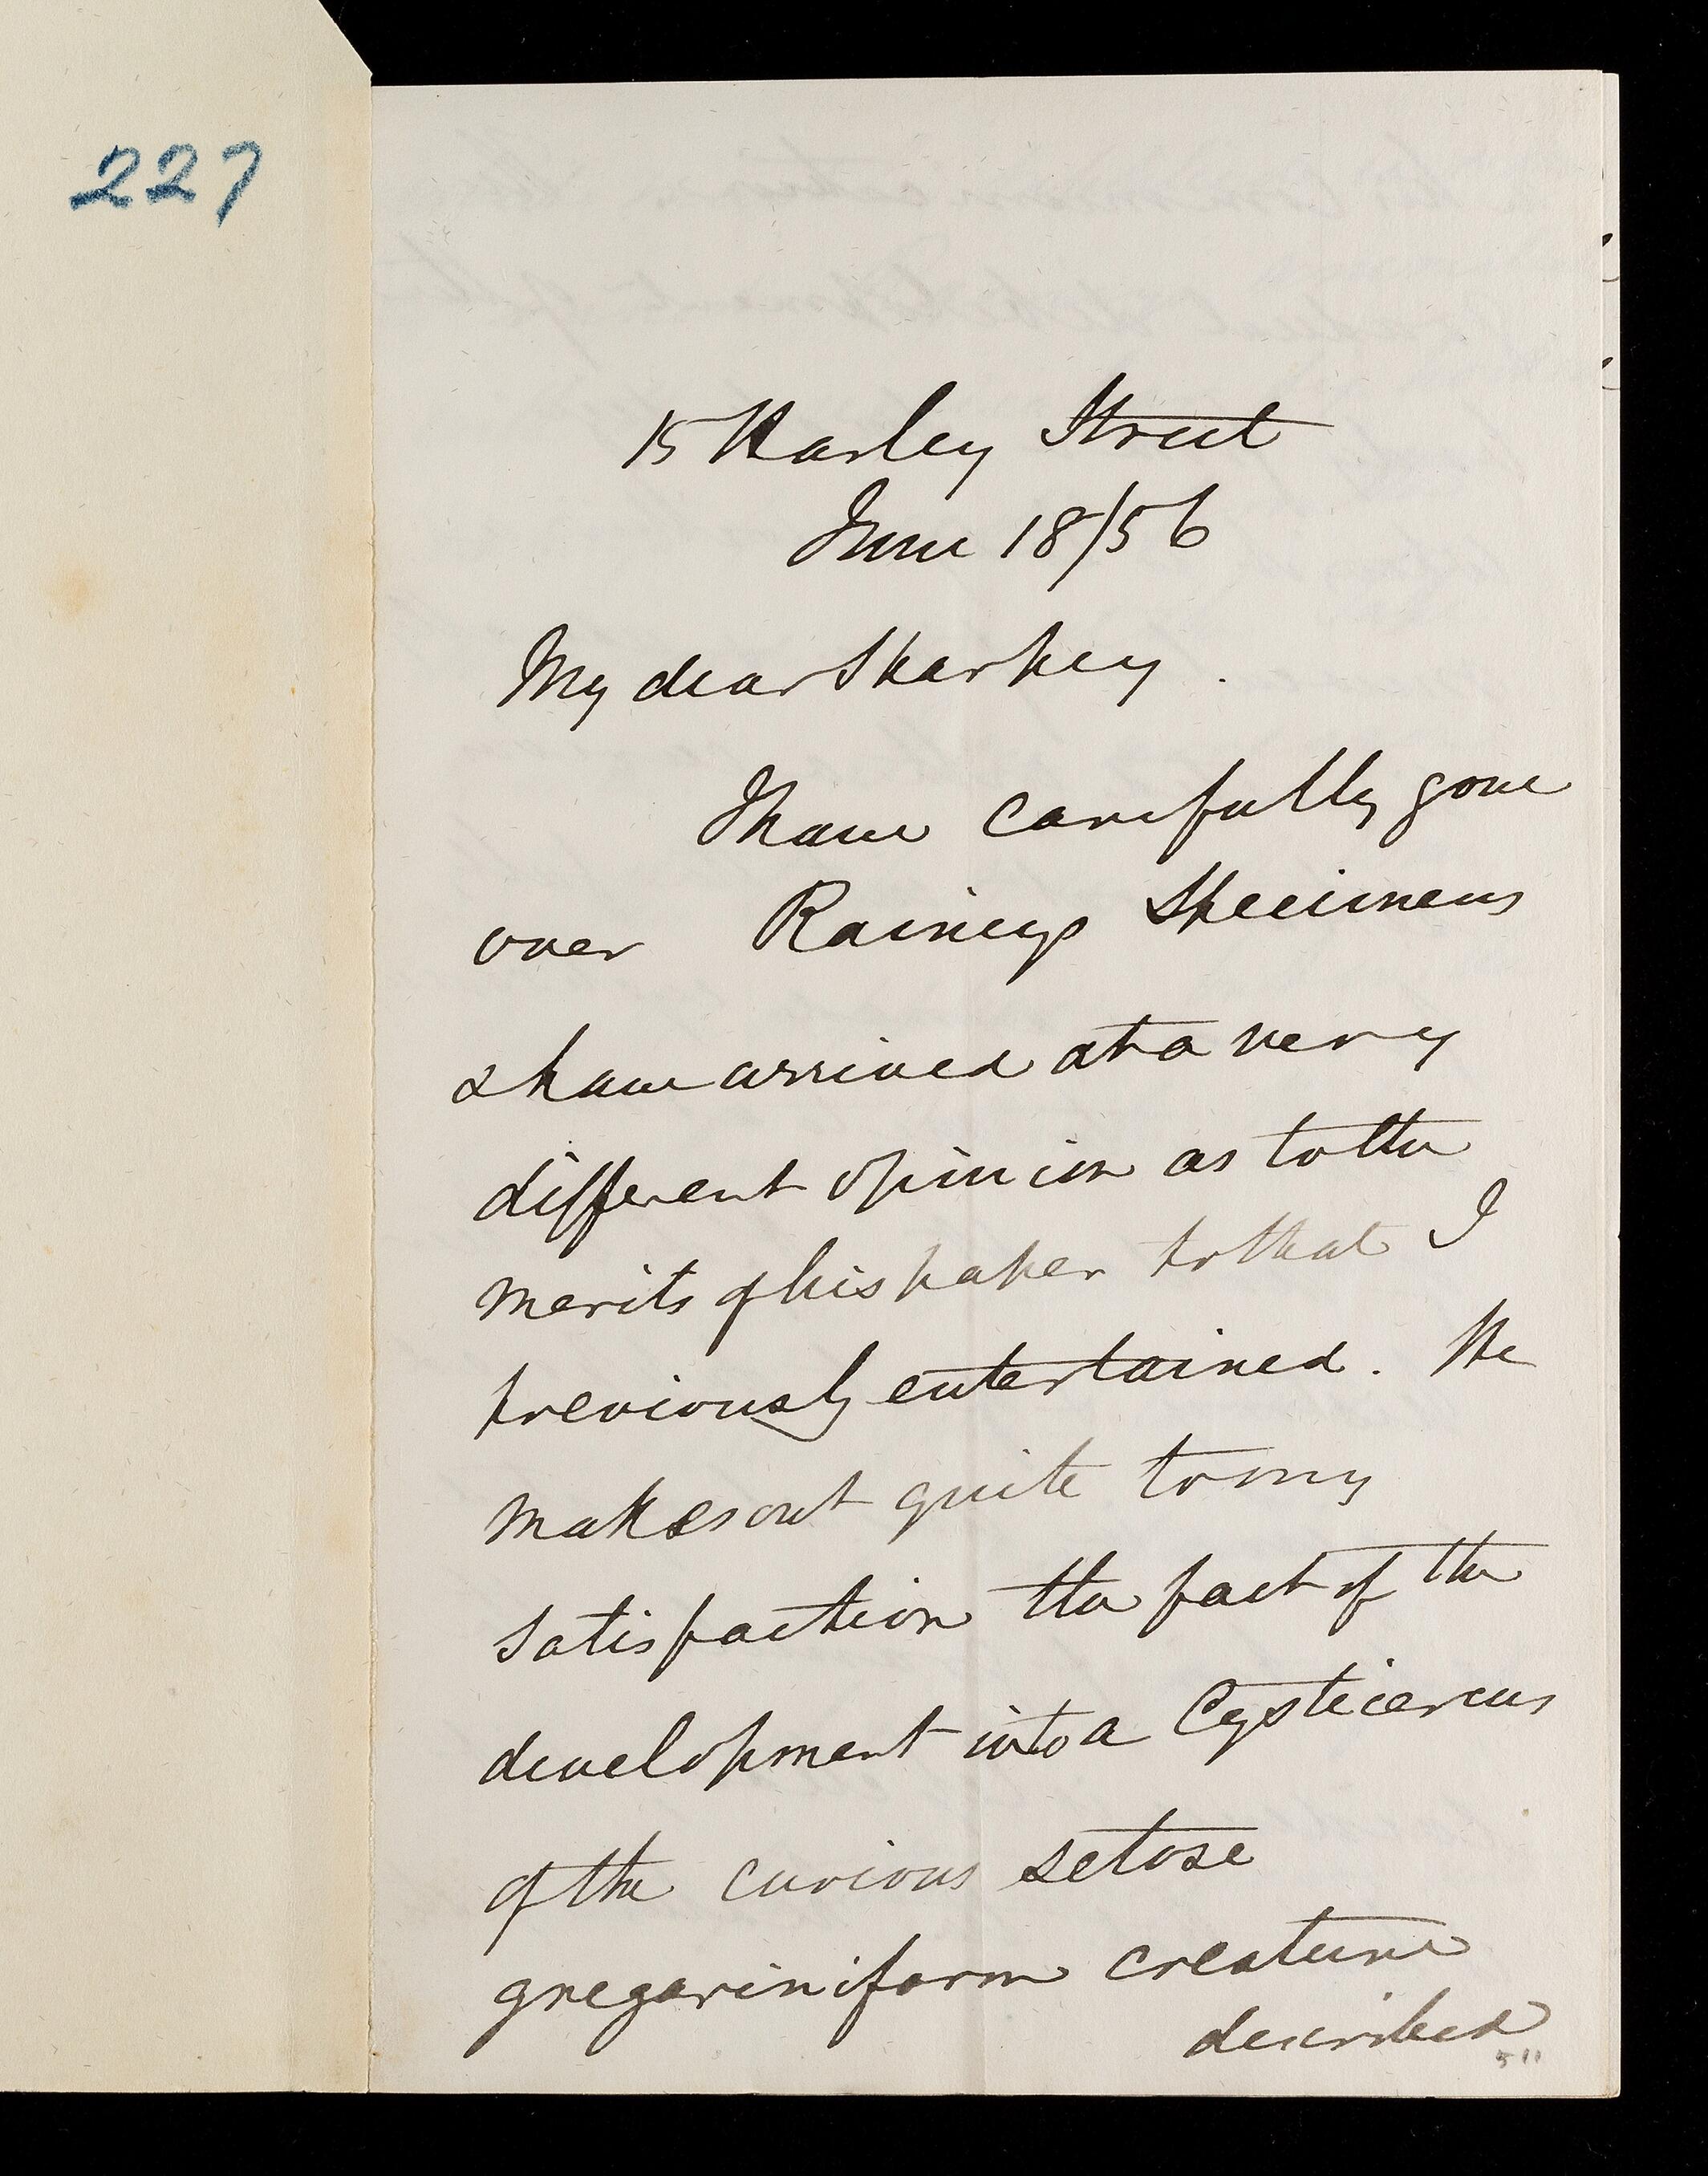 227
15 Harley Street
June 18/56
My dear Sharpey.
I have carefully gone
over Rainey's Specimens
& have arrived at a very
different opinion as to the
merits of his paper to that I
previously entertained. He
makes out quite to my
satisfaction the fact of the
development into a Cysticercus
of the curious setose
gregariniform creature
described
511